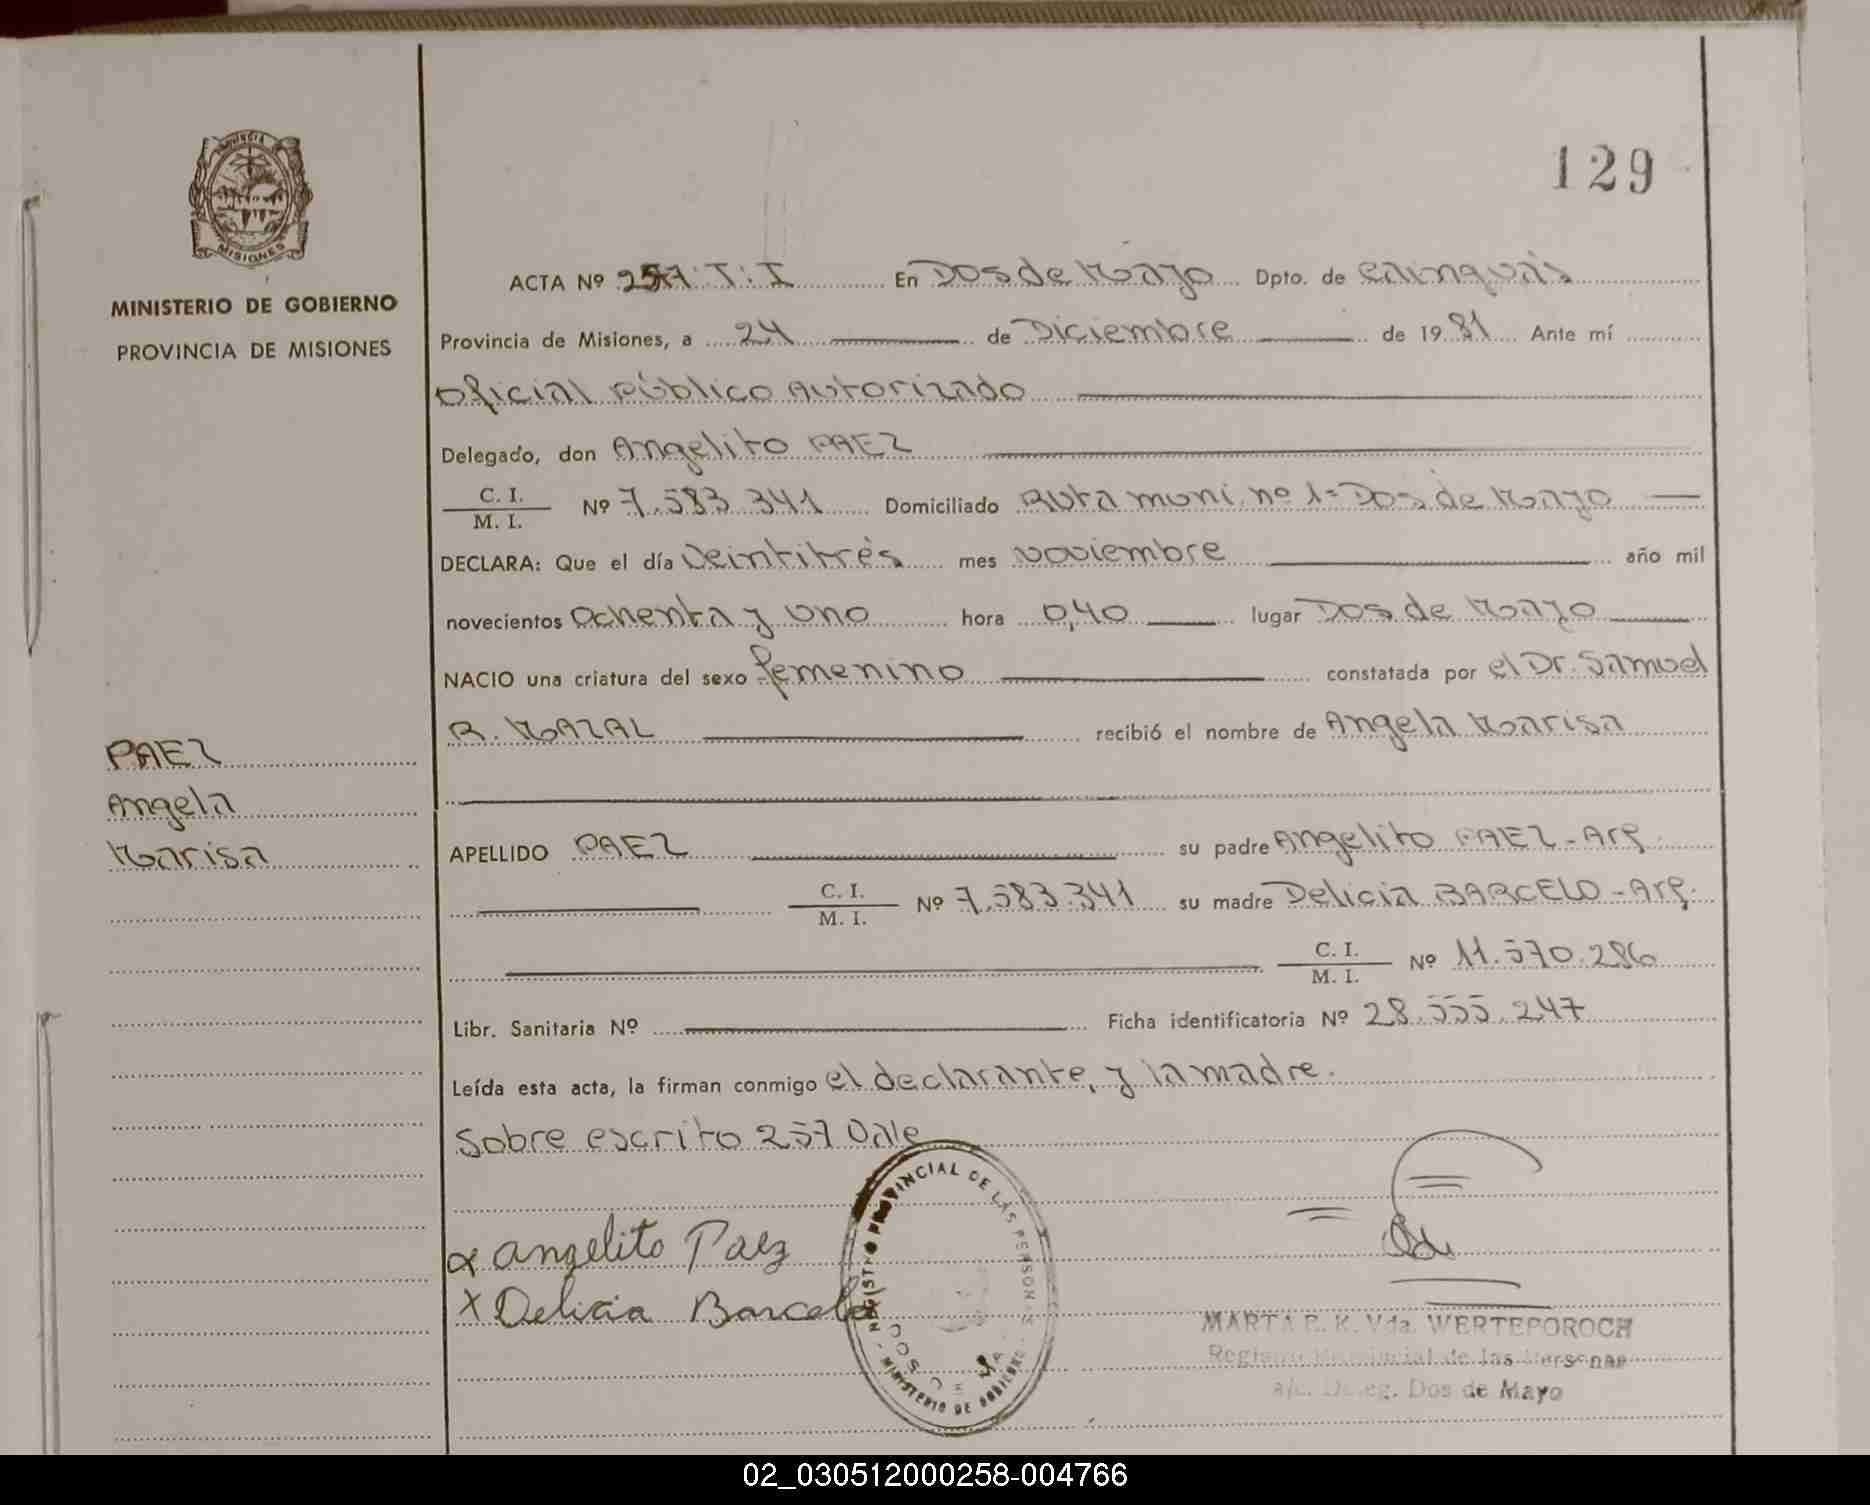 129
PROVINCIA
MISIONES
MINISTERIO DE GOBIERNO
PROVINCIA DE MISIONES
ACTA Nº 257:T:I En Dos de Mayo Dpto. de Cainguás
Provincia de Misiones, a 24 de Diciembre de 1981 Ante mí
Oficial Público Autorizado
Delegado, don Angelito PAEZ
C. I. / M. I. Nº 7.583.341 Domiciliado Ruta muni. nº 1= Dos de Mayo
DECLARA: Que el día Veintitrés mes noviembre año mil
novecientos Ochenta y uno hora 0,40 lugar Dos de Mayo
NACIO una criatura del sexo femenino constatada por el Dr. Samuel
R. MAZAL recibió el nombre de Angela Marisa
PAEZ
Angela
Marisa
APELLIDO PAEZ su padre Angelito PAEZ - Arg.
C. I. / M. I. Nº 7.583.341 su madre Delicia BARCELO - Arg.
C. I. / M. I. Nº 11.570.286
Libr. Sanitaria Nº Ficha identificatoria Nº 28.555.247
Leída esta acta, la firman conmigo el declarante, y la madre.
Sobre escrito 257 Vale
x Angelito Paez
x Delicia Barcelo
REGISTRO PROVINCIAL DE LAS PERSONAS
MINISTERIO DE GOBIERNO
MARTA E. K. Vda. WERTEPOROCH
Registro Provincial de las Personas
a/c. Deleg. Dos de Mayo
02_030512000258-004766